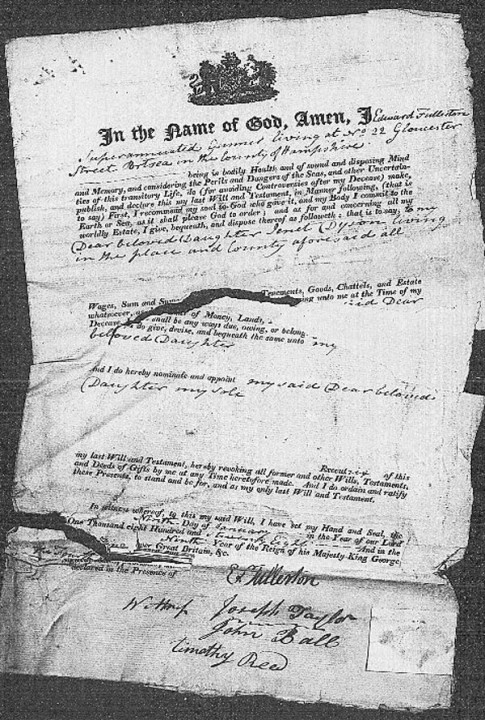 In the Name of God, Amen, I Edward Fullerton
Superannuated Gunner living at No 22 Gloucester
Street Portsea in the County of Hampshire
being in bodily Health, and of sound and disposing Mind
and Memory, and considering the Perils and Dangers of the Seas, and other Uncertain-
ties of this transitory Life, do (for avoiding Controversies after my Decease) make,
publish, and declare this my last Will and Testament, in Manner following, (that is
to say) First, I recommend my soul to God who gave it, and my Body I commit to the
Earth or Sea, as it shall please God to order; and as for and concerning all my
worldly Estate, I give, bequeath, and dispose thereof as followeth; that is to say, to my
Dear beloved Daughter Jenet Dyson living
in the place and County aforesaid all
Wages, Sum and Tenements, Goods, Chattels, and Estate
whatsoever, as shall be of Money, Lands, unto me at the Time of my
Decease, do give, devise, and bequeath the same unto my said Dear
beloved Daughter
And I do hereby nominate and appoint my said Dear beloved
Daughter my sole
Executrix of this
my last Will and Testament, hereby revoking all former and other Wills, Testaments,
and Deeds of Gifts by me at any Time heretofore made. And I do ordain and ratify
these Presents, to stand and be for, and as my only last Will and Testament.
In witness whereof, to this my said Will, I have set my Hand and Seal, the
Ninth Day of January in the Year of our Lord
One Thousand eight Hundred and twenty Eight And in the
Ninth Year of the Reign of his Majesty King George
over Great Britain, &c.
declared in the Presence of
E Fullerton
Witness Joseph Taylor
John Ball
Timothy Reed